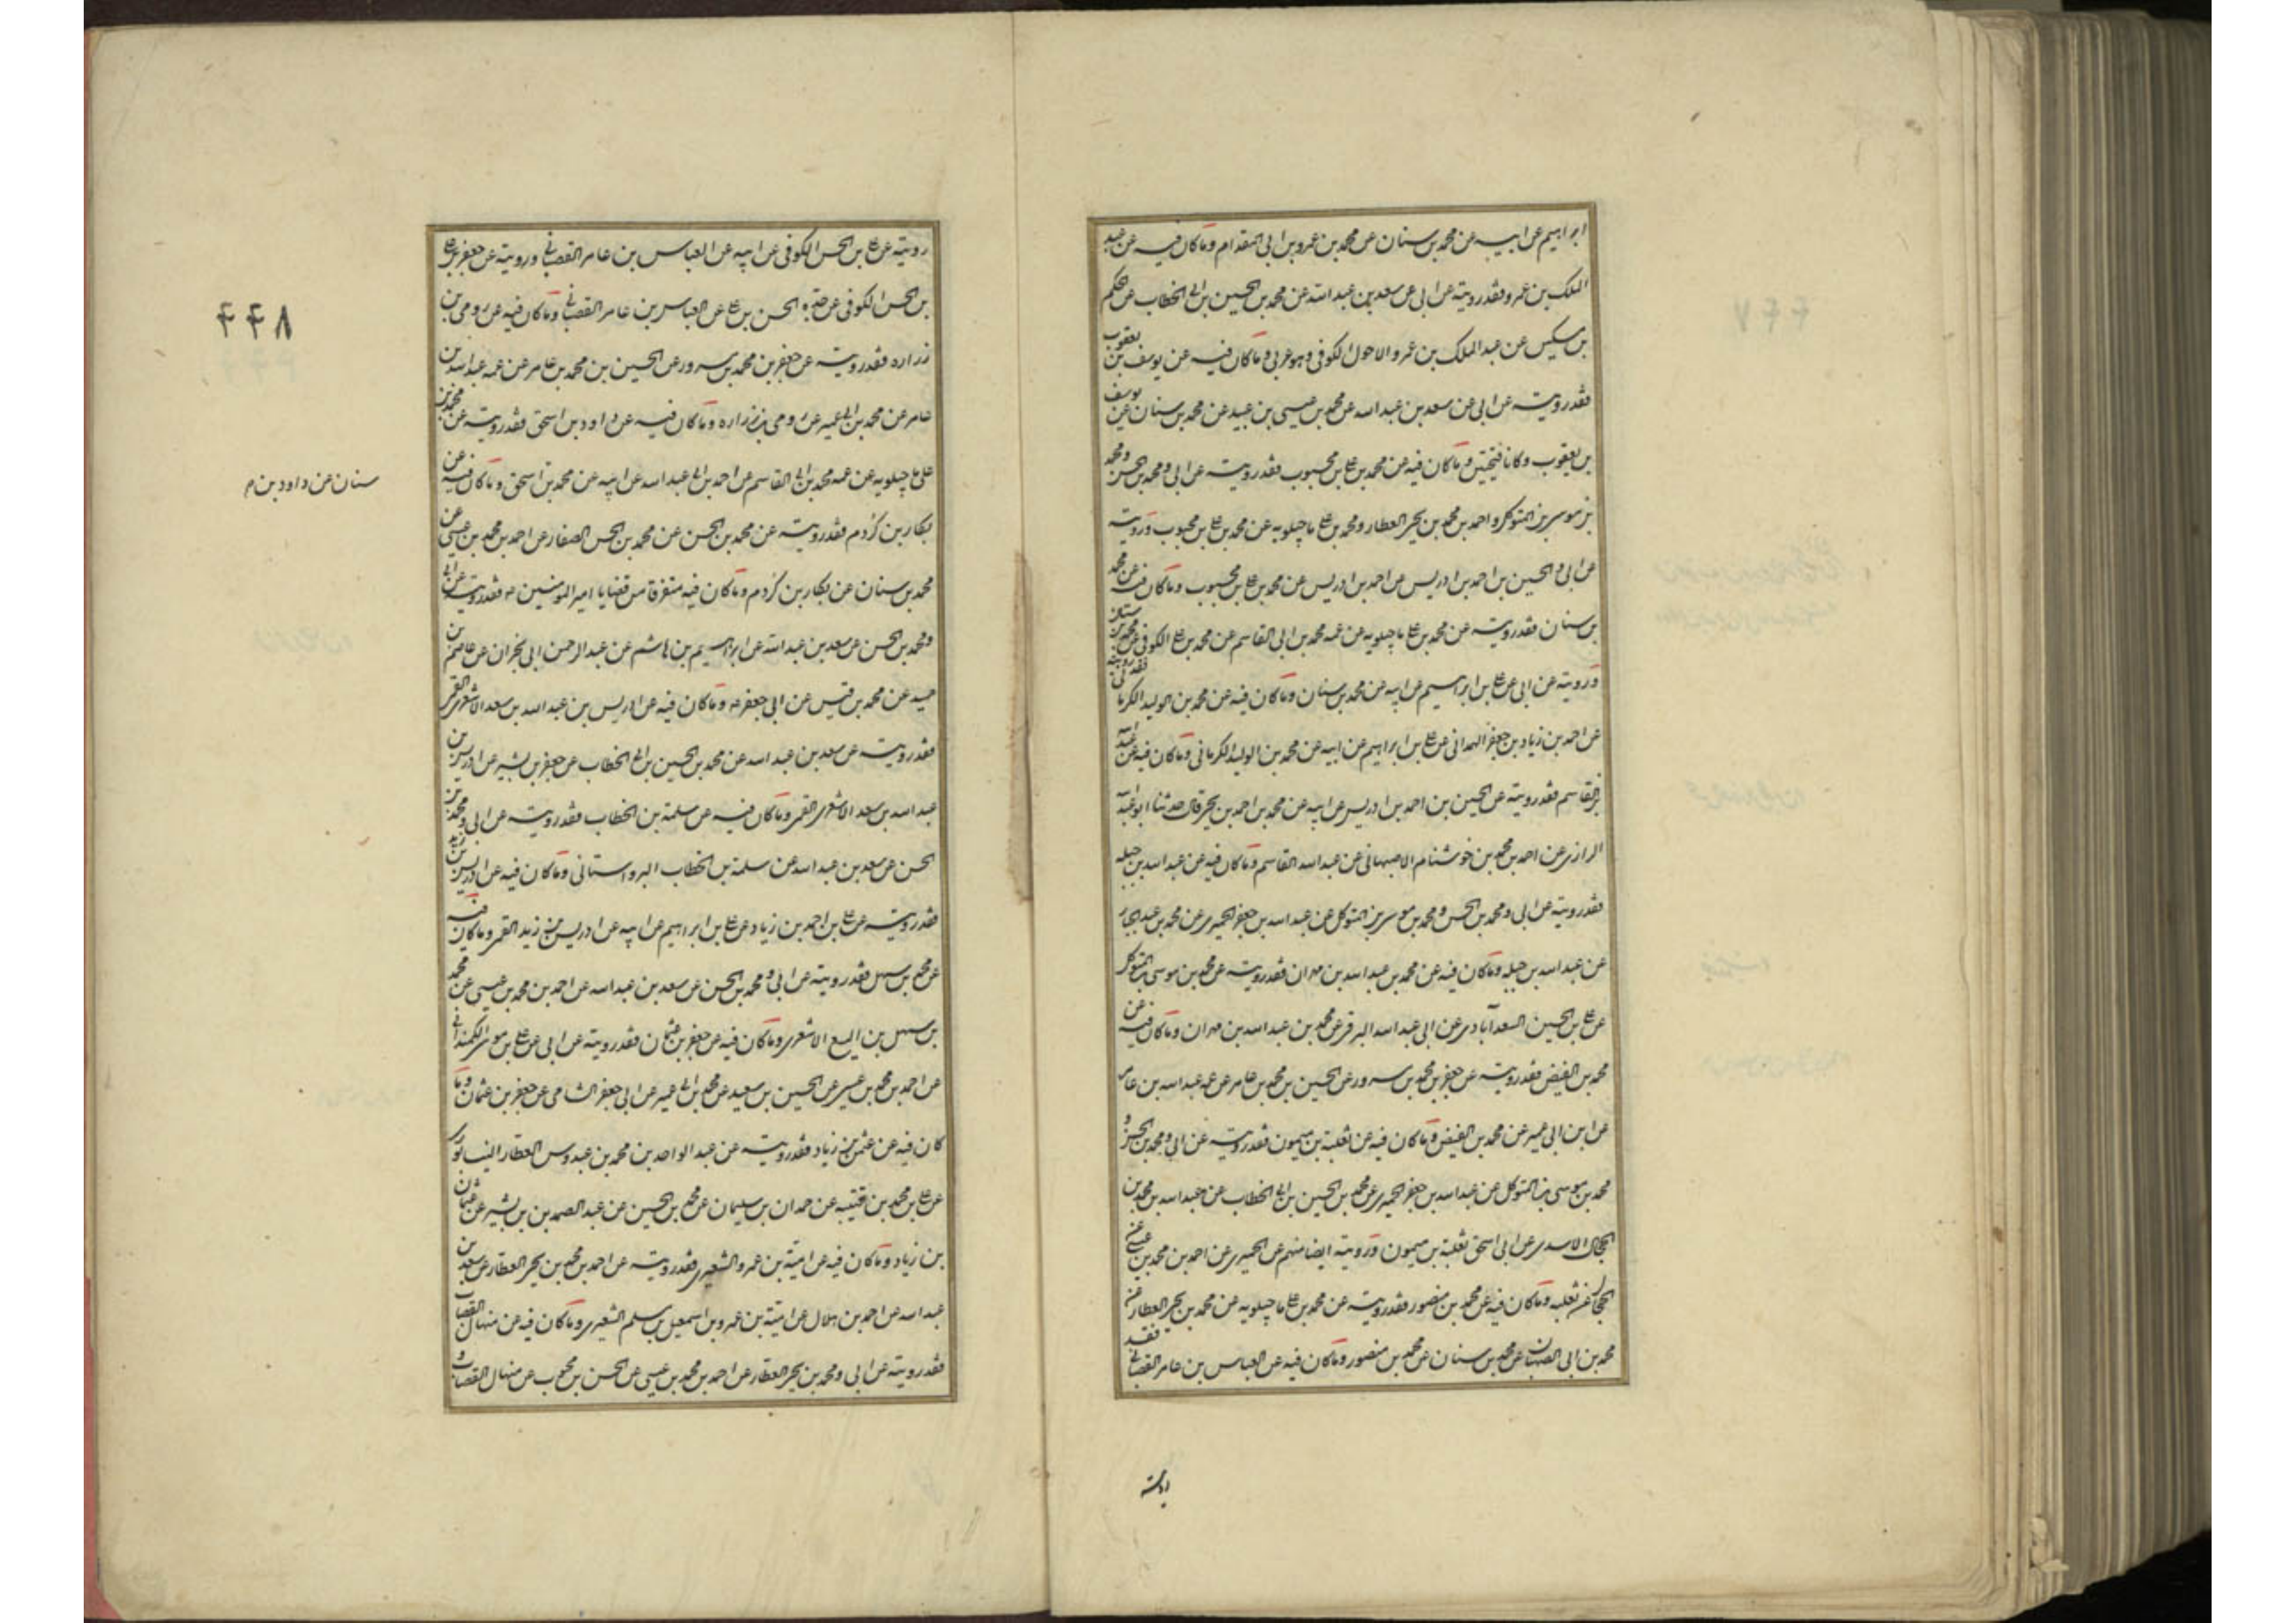 ابراهیم عن ابیه عن محمد بن سنان عن محمد بن عمرو بن ابی المقدام وماکان فیه عن عبد
الملک بن عمرو فقد رویته عن ابی عن سعد بن عبد الله عن محمد بن الحسین بن ابی الخطاب عن الحکم
بن مسکین عن عبد الملک بن عمرو الاحول الکوفی وهو عربی وماکان فیه عن یوسف بن یعقوب
فقد رویته عن ابی عن سعد بن عبد الله عن محمد بن عیسی بن عبید عن محمد بن سنان عن یوسف
بن یعقوب وکانا فیحتین وماکان فیه عن محمد بن علی بن محبوب فقد رویته عن ابی ومحمد بن الحسن ومحمد
بن موسی بن المتوکل واحمد بن محمد بن یحیی العطار ومحمد بن علی ماجیلویه عن محمد بن علی بن محبوب ورویته
عن ابی والحسین بن احمد بن ادریس عن احمد بن ادریس عن محمد بن علی بن محبوب وماکان فیه عن محمد
بن سنان فقد رویته عن محمد بن علی ماجیلویه عن عمه محمد بن ابی القاسم عن محمد بن علی الکوفی عن محمد بن سنان
ورویته عن ابی عن علی بن ابراهیم عن ابیه عن محمد بن سنان وماکان فیه عن محمد بن الولید الکرمانی فقد رویته
عن احمد بن زیاد بن جعفر الهمدانی عن علی بن ابراهیم عن ابیه عن محمد بن الولید الکرمانی وماکان فیه عن عبد الله
بن القاسم فقد رویته عن الحسین بن احمد بن ادریس عن ابیه عن محمد بن احمد بن یحیی قال حدثنا ابو عبد الله
الرازی عن احمد بن محمد بن خوشنام الاصبهانی عن عبد الله القاسم وماکان فیه عن عبد الله بن جبله
فقد رویته عن ابی ومحمد بن الحسن ومحمد بن موسی بن المتوکل عن عبد الله بن جعفر الحمیری عن محمد بن عبد الجبار
عن عبد الله بن جبله وماکان فیه عن محمد بن عبد الله بن مهران فقد رویته عن محمد بن موسی بن المتوکل
عن علی بن الحسین السعدآبادی عن ابی عبد الله البرقی عن محمد بن عبد الله بن مهران وماکان فیه عن
محمد بن الفیض فقد رویته عن جعفر بن محمد بن مسرور عن الحسین بن محمد بن عامر عن عمه عبد الله بن عامر
عن ابن ابی عمیر عن محمد بن الفیض وماکان فیه عن ثعلبة بن میمون فقد رویته عن ابی ومحمد بن الحسن و
محمد بن موسی بن المتوکل عن عبد الله بن جعفر الحمیری عن محمد بن الحسین بن ابی الخطاب عن عبد الله بن محمد بن
الحجال الاسدی عن ابی اسحق ثعلبة بن میمون ورویته ایضا منهم عن الحمیری عن احمد بن محمد بن عیسی عن
الحجال عن ثعلبه وماکان فیه عن محمد بن منصور فقد رویته عن محمد بن علی ماجیلویه عن محمد بن یحیی العطار عن
محمد بن ابی الصهبان عن محمد بن سنان عن محمد بن منصور وماکان فیه عن العباس بن عامر القصبانی فقد
رویته
رویته عن علی بن الحسن الکوفی عن ابیه عن العباس بن عامر القصبانی ورویته عن جعفر بن علی
بن الحسن الکوفی عن جده الحسن بن علی عن العباس بن عامر القصبانی وماکان فیه عن رومی بن
زراره فقد رویته عن جعفر بن محمد بن مسرور عن الحسین بن محمد بن عامر عن عمه عبد الله بن
عامر عن محمد بن ابی عمیر عن رومی بن زراره وماکان فیه عن داود بن اسحق فقد رویته عن محمد بن
علی ماجیلویه عن عمه محمد بن ابی القاسم عن احمد بن ابی عبد الله عن ابیه عن محمد بن اسحق وماکان فیه عن
بکار بن کردم فقد رویته عن محمد بن الحسن عن محمد بن الحسن الصفار عن احمد بن محمد بن عیسی عن
محمد بن سنان عن بکار بن کردم وماکان فیه متفرقا من قضایا امیر المومنین فقد رویته عن ابی
ومحمد بن الحسن عن سعد بن عبد الله عن ابراهیم بن هاشم عن عبد الرحمن ابی نجران عن عاصم بن
حمید عن محمد بن قیس عن ابی جعفر وماکان فیه عن ادریس بن عبد الله بن سعد الاشعری القمی
فقد رویته عن سعد بن عبد الله عن محمد بن الحسین بن ابی الخطاب عن جعفر بن بشیر عن ادریس بن
عبد الله بن سعد الاشعری القمی وماکان فیه عن سلمة بن الخطاب فقد رویته عن ابی ومحمد بن
الحسن عن سعد بن عبد الله عن سلمة بن الخطاب البراوستانی وماکان فیه عن ادریس بن زید
فقد رویته عن علی بن احمد بن زیاد عن علی بن ابراهیم عن ابیه عن ادریس بن زید القمی وماکان فیه
عن محمد بن سهل فقد رویته عن ابی ومحمد بن الحسن عن سعد بن عبد الله عن احمد بن محمد بن عیسی عن محمد
بن سهل بن الیسع الاشعری وماکان فیه عن جعفر بن عثمان فقد رویته عن ابی عن علی بن موسی الکمندانی
عن احمد بن محمد بن عیسی عن الحسین بن سعید عن محمد بن ابی عمیر عن ابی جعفر الشامی عن جعفر بن عثمان وما
کان فیه عن عثمن بن زیاد فقد رویته عن عبد الواحد بن محمد بن عبدوس العطار النیسابوری
عن علی بن محمد بن قتیبه عن حمدان بن سلیمان عن محمد بن الحسین عن عبد الصمد بن بشیر عن عثمان
بن زیاد وماکان فیه عن امیة بن عمرو الشعیری فقد رویته عن احمد بن محمد بن یحیی العطار عن سعد بن
عبد الله عن احمد بن هلال عن امیة بن عمرو بن اسمعیل بن مسلم الشعیری وماکان فیه عن منهال القصاب
فقد رویته عن ابی ومحمد بن یحیی العطار عن احمد بن محمد بن عیسی عن الحسن بن محبوب عن منهال القصاب و
۴۴۸
سنان عن داود بن م